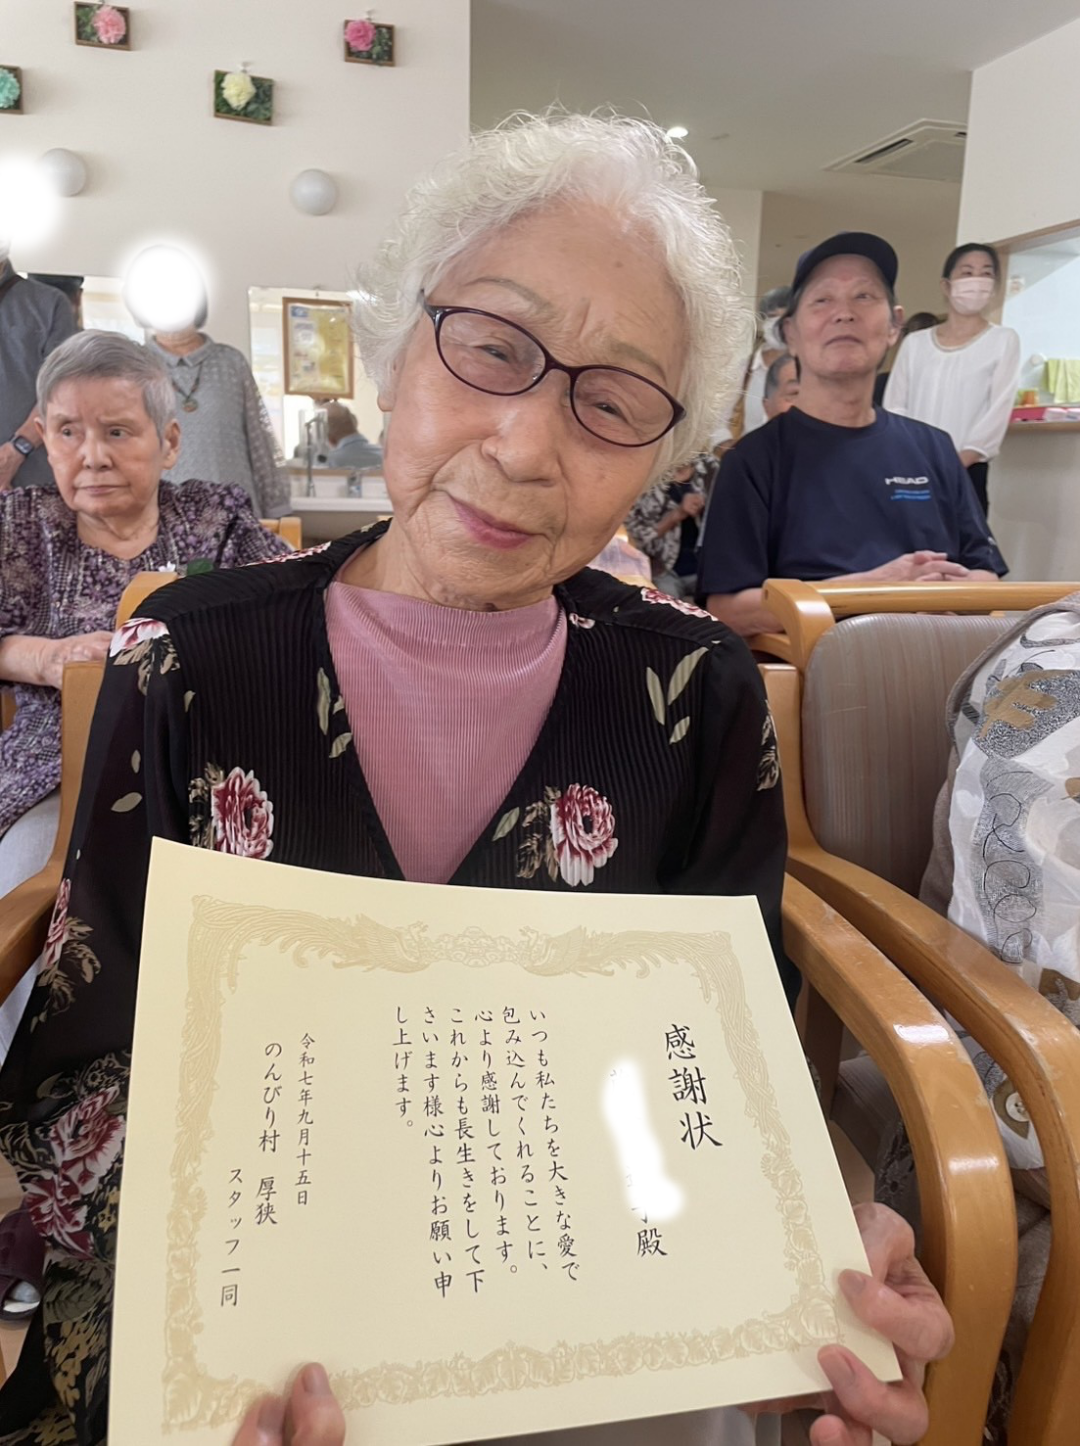 感謝状
殿
いつも私たちを大きな愛で
包み込んでくれることに、
心より感謝しております。
これからも長生きをして下
さいます様心よりお願い申
し上げます。
令和七年九月十五日
のんびり村 厚狭
スタッフ一同
HEAD